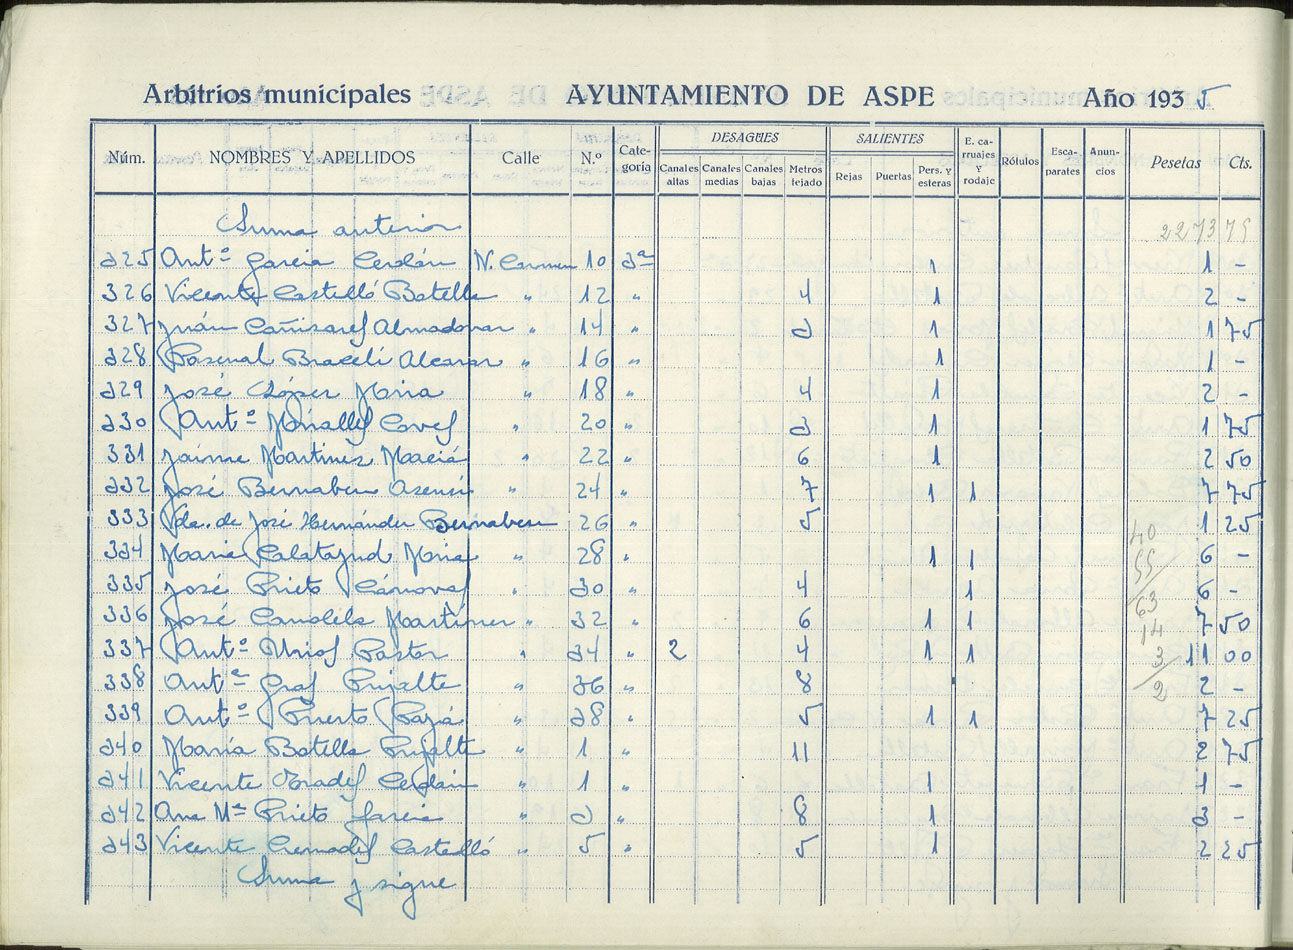 Arbitrios municipales AYUNTAMIENTO DE ASPE Año 1935
DESAGÜES SALIENTES
Núm. NOMBRES Y APELLIDOS Calle N.º Cate-goría Canales altas Canales medias Canales bajas Metros tejado Rejas Puertas Pers. y esteras E. carruajes y rodaje Rótulos Esca-parates Anun-cios Pesetas Cts.
Suma anterior 2273 75
325 Antº García Cerdán N. Carmen 10 3ª 1 1 -
326 Vicente Castelló Botella " 12 " 4 1 2 -
327 Juán Cañizares Almodovar " 14 " 3 1 1 75
328 Pascual Braceli Alcaraz " 16 " 1 1 -
329 José López Mira " 18 " 4 1 2 -
330 Antº Miralles Caves " 20 " 3 1 1 75
331 Jaime Martinez Maciá " 22 " 6 1 2 50
332 José Bernabeu Asensi " 24 " 7 1 1 7 75
333 Vda. de José Hernández Bernabeu 26 " 5 1 25
334 Maria Calatayud Mira " 28 " 1 1 6 -
335 José Prieto Cánovas " 30 " 4 1 6 -
336 José Candela Martínez " 32 " 6 1 1 7 50
337 Antº Urios Pastor " 34 " 2 4 1 1 11 00
338 Antª Gras Pujalte " 36 " 8 2 -
339 Antº Puerto Payá " 38 " 5 1 1 7 25
340 María Botella Pujalte " 1 " 11 2 75
341 Vicente Cerdán " 1 " 1 1 -
342 Ana Mª Prieto García " 3 " 8 1 3 -
343 Vicente Cremades Castelló " 5 " 5 1 2 25
Suma y sigue
40
55
63
14
3
2